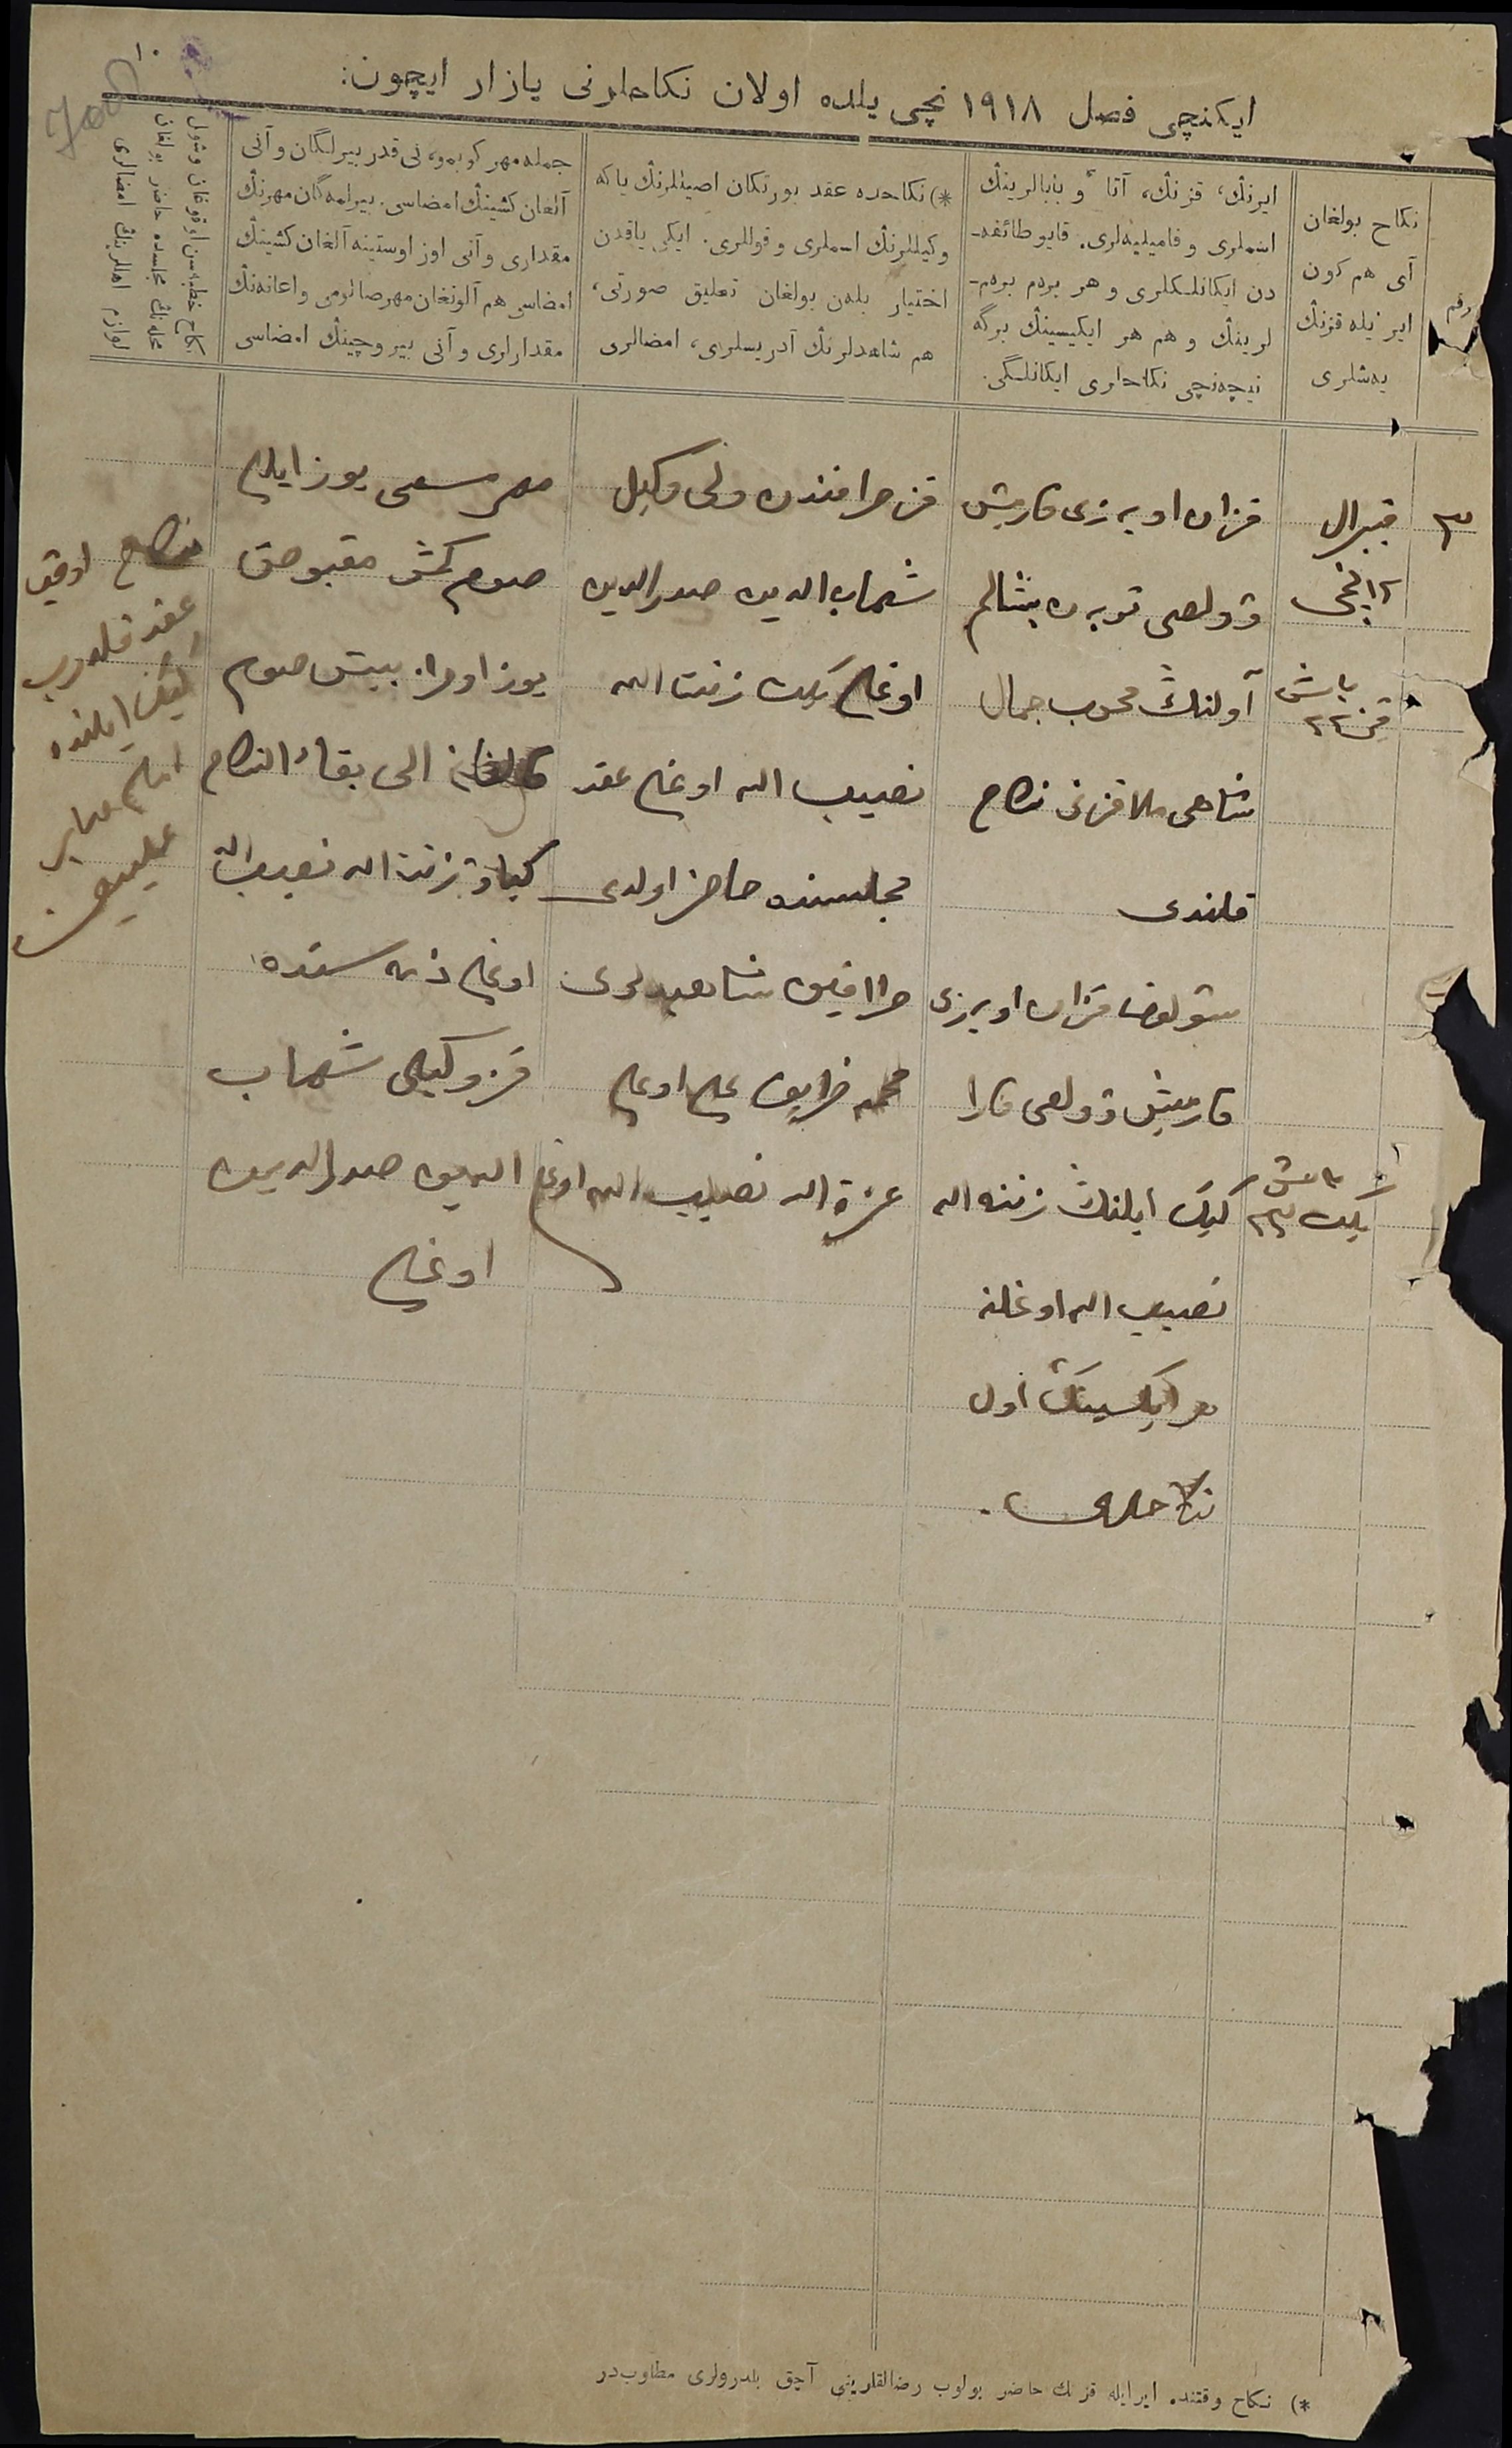 ١٠
ایکنچی فصل ١٩١٨ نچی یلده اولان نکاحلرنی یازار ایچون:
رقم
نکاح بولغان
آی هم کون
ایر ایله قزنڭ
یه‌شلری
ایرنڭ، قزنڭ، آتا و بابالرینڭ
اسملری و فامیلیه‌لری. قایو طائفه-
دن ایکانلکلری و هر بردم بردم-
لرینڭ و هم هر ایکیسینڭ برگه
نیچه‌نچی نکاحلری ایکانلگی.
*) نکاحده عقد یورتکان اصیللرنڭ یاکه
وکیللرنڭ اسملری و قوللری. ایکی یاقدن
اختیار بلەن بولغان تعلیق صورتی،
هم شاهدلرنڭ آدریسلری، امضالری
جمله مهر کوبمو، نی قدر بیرلگان و آنی
آلغان کشینڭ امضاسی. بیرلمه‌گان مهرنڭ
مقداری و آنی اوز اوستینه آلغان کشینڭ
امضاسی هم آلونغان مهر صالومی و اعانه‌نڭ
مقدارلری و آنی بیروچینڭ امضاسی
نکاح خطبه‌سن اوقوغان و شول
محله‌نڭ مجلسده حاضر بولغان
لوازم اهللرینڭ امضالری
٣
فیبرال
١٢ نچی
یاش
قز ٢٢
یاش
یکت ٢٣
قزان اویزی قارمیش
وولصی توبه‌ن بیشالم
آولنڭ محبوب جمال
شاهی ملا قزنی نکاح
قلندی
سوکولوضا قزان اویزی
قارمیش وولصی قارا
کیک ایلنڭ زینة الله
نصیب الله اوغلنه
هر ایکیسینڭ اول
نکاحلری.
قز طرافندن ولی وکیل
شهاب الدین صدرالدین
اوغلی یکت زینت الله
نصیب الله اوغلی عقد
مجلسنده حاضر اولدی
طرافین شاهیدلری
محمد
عزة الله نصیب الله اوغلی
مهر مسمی یوز ایللی
صوم کمش مقبوضی
یوز اوتوز بیش صوم
قالغانی الی بقاء النکاح
کیاو زینة الله نصیب الله
اوغلی ذمه سنده
قز وکیلی شهاب
الدین صدرالدین
اوغلی
نکاح اوقیب
عقد قلدرب
کیک ایلنده
امام صابر
*) نکاح وقتنده ایر ایله قزنڭ حاضر بولوب رضالقلارینی آچق بلدرولری مطلوب‌در